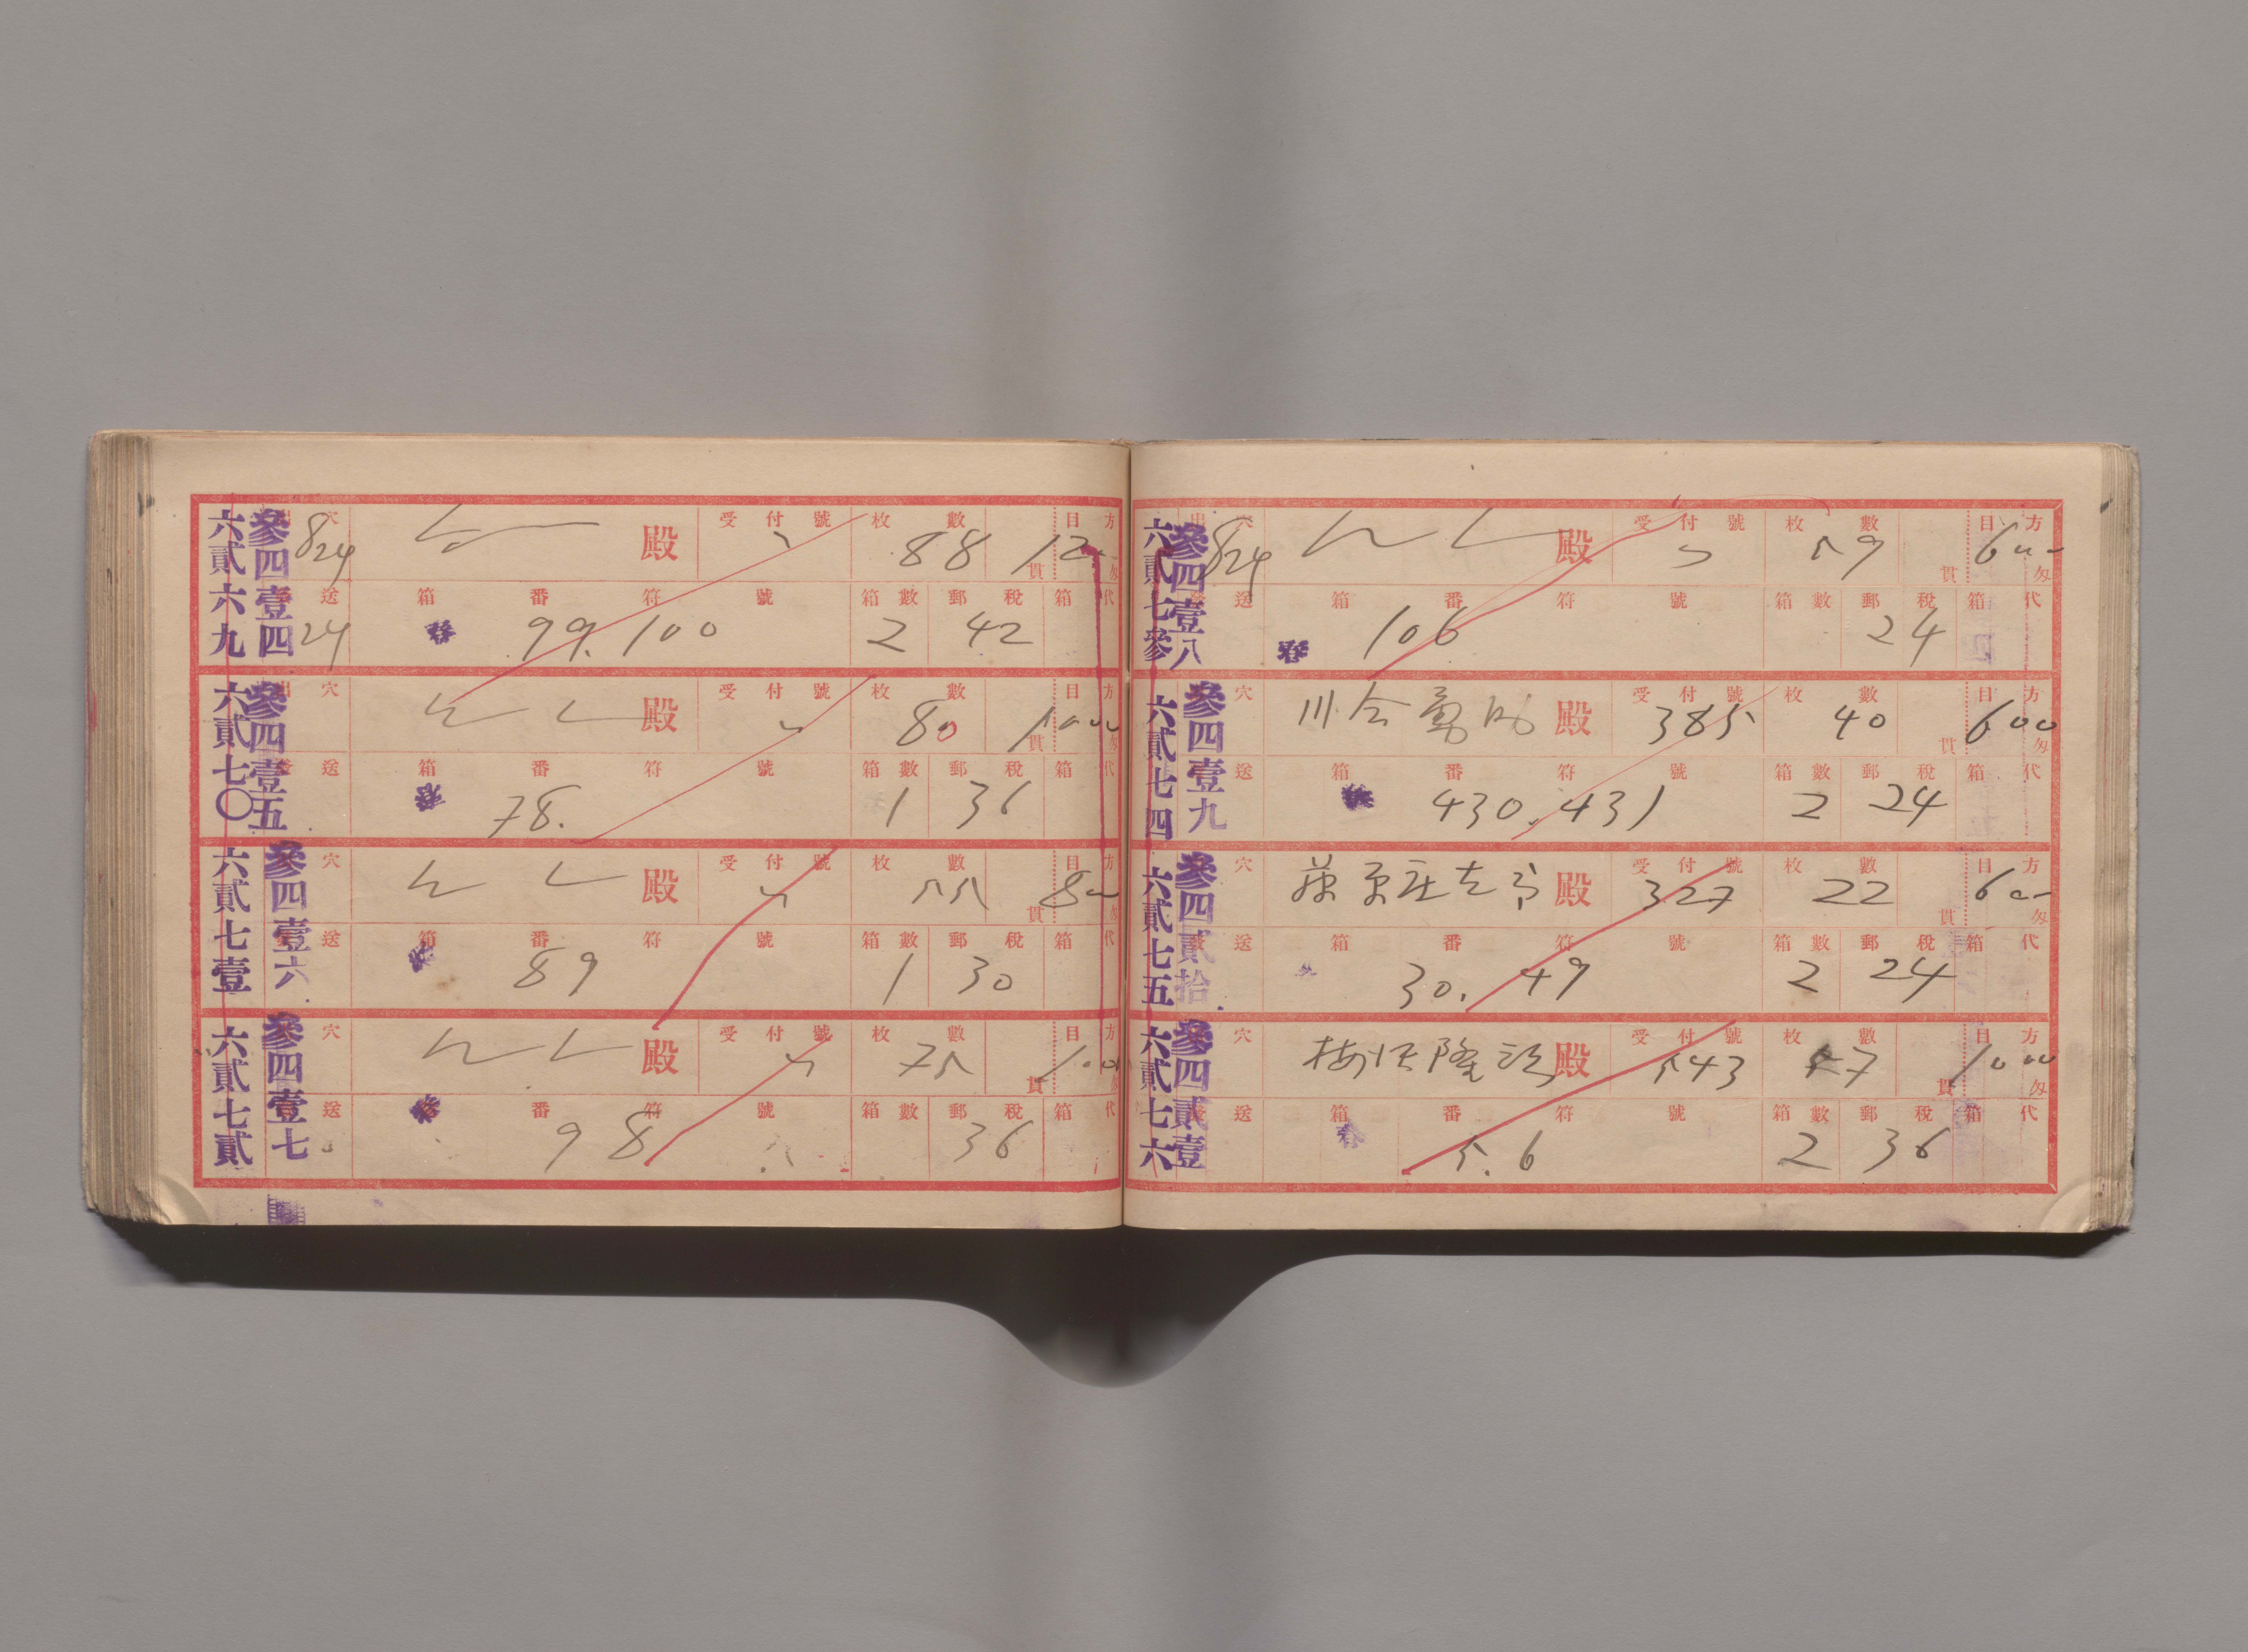 六貳六九 參四壹四 出 穴 8/24 殿 受付號 〃 枚數 88 貫 目方 匁 12
發送 24 箱番符號 春 99. 100 箱數 2 郵稅 42 箱代
六貳七〇 參四壹五 出 穴 〃 〃 殿 受付號 〃 枚數 80 貫 目方 匁 1000
發送 箱番符號 春 78. 箱數 1 郵稅 36 箱代
六貳七壹 參四壹六 穴 〃 〃 殿 受付號 〃 枚數 55 貫 目方 匁 800
送 箱番符號 89 箱數 1 郵稅 30 箱代
六貳七貳 參四壹七 穴 〃 〃 殿 受付號 〃 枚數 75 貫 目方 匁 1000
送 箱番符號 春 98 箱數 郵稅 36 箱代
六貳七參 參四壹八 出 穴 8/24 〃 〃 殿 受付號 〃 枚數 59 貫 目方 匁 600
發送 箱番符號 春 106 箱數 郵稅 24 箱代
六貳七四 參四壹九 穴 川合 殿 受付號 385 枚數 40 貫 目方 匁 600
送 箱番符號 430. 431 箱數 2 郵稅 24 箱代
六貳七五 參四貳拾 穴 殿 受付號 327 枚數 22 貫 目方 匁 600
發送 箱番符號 30. 49 箱數 2 郵稅 24 箱代
六貳七六 參四貳壹 穴 殿 受付號 543 枚數 57 貫 目方 匁 1000
發送 箱番符號 春 5. 6 箱數 2 郵稅 36 箱代